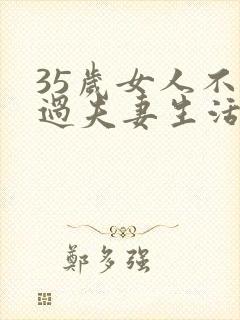 35歲女人不
過夫妻生活
鄭多强